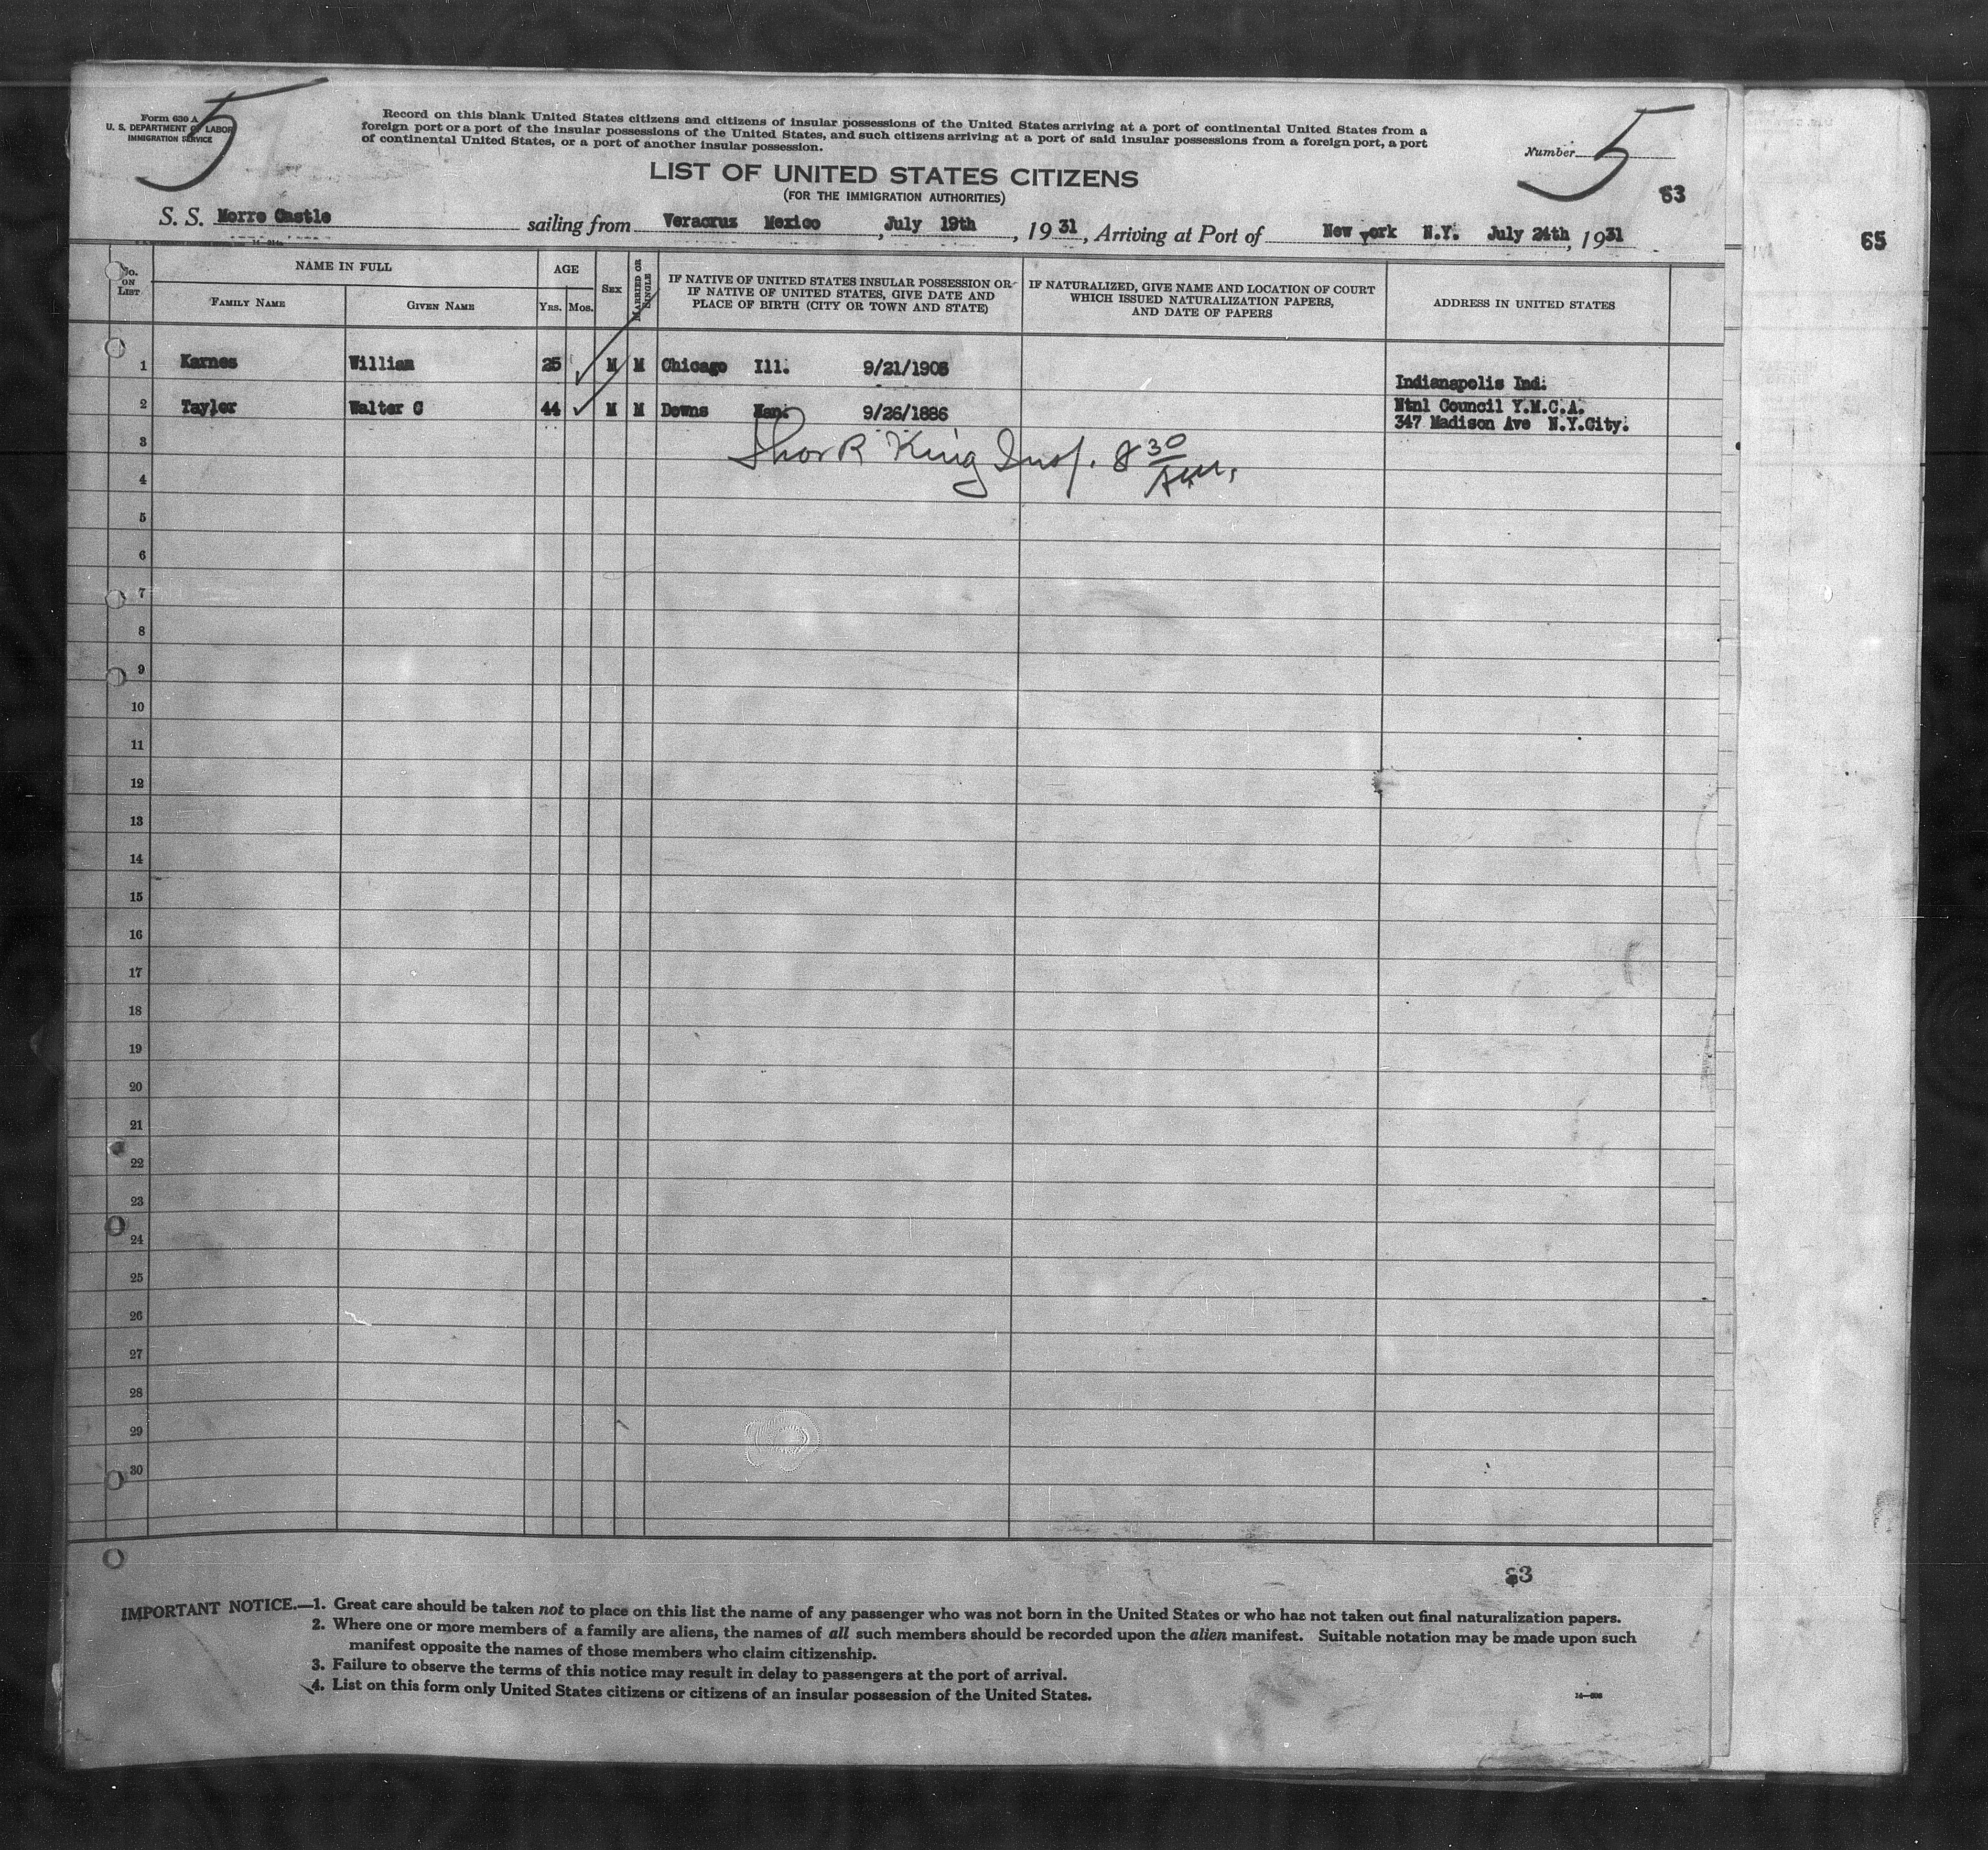 5
5
Form 630 A
U. S. DEPARTMENT OF LABOR
IMMIGRATION SERVICE
Record on this blank United States citizens and citizens of insular possessions of the United States arriving at a port of continental United States from a
foreign port or a port of the insular possessions of the United States, and such citizens arriving at a port of said insular possessions from a foreign port, a port
of continental United States, or a port of another insular possession.
Number
LIST OF UNITED STATES CITIZENS
(FOR THE IMMIGRATION AUTHORITIES)
63
65
S. S. Morro Castle sailing from Veracruz Mexico, July 19th, 1931, Arriving at Port of New York N.Y. July 24th, 1931
No. ON LIST
NAME IN FULL
FAMILY NAME
GIVEN NAME
AGE
YRS. MOS.
SEX
MARRIED OR SINGLE
IF NATIVE OF UNITED STATES INSULAR POSSESSION OR
IF NATIVE OF UNITED STATES, GIVE DATE AND
PLACE OF BIRTH (CITY OR TOWN AND STATE)
IF NATURALIZED, GIVE NAME AND LOCATION OF COURT
WHICH ISSUED NATURALIZATION PAPERS,
AND DATE OF PAPERS
ADDRESS IN UNITED STATES
1 Karnes William 25 M M Chicago Ill. 9/21/1905
Indianapolis Ind.
2 Taylor Walter C 44 M M Downs Kan. 9/26/1886 Ntnl Council Y.M.C.A.
347 Madison Ave N.Y.City.
3
King Insp. 8 30
4
5
6
7
8
9
10
11
12
13
14
15
16
17
18
19
20
21
22
23
24
25
26
27
28
29
30
IMPORTANT NOTICE.—1. Great care should be taken not to place on this list the name of any passenger who was not born in the United States or who has not taken out final naturalization papers.
2. Where one or more members of a family are aliens, the names of all such members should be recorded upon the alien manifest. Suitable notation may be made upon such
manifest opposite the names of those members who claim citizenship.
3. Failure to observe the terms of this notice may result in delay to passengers at the port of arrival.
4. List on this form only United States citizens or citizens of an insular possession of the United States.